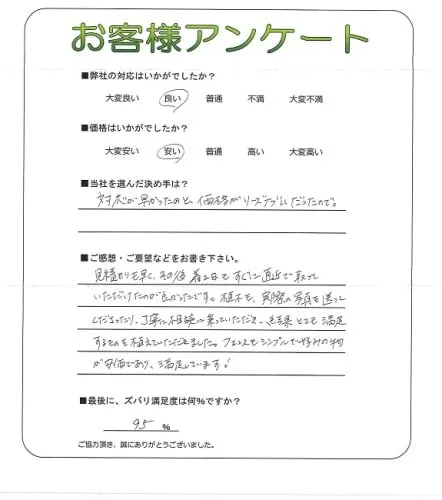 お客様アンケート
■弊社の対応はいかがでしたか？
大変良い 良い 普通 不満 大変不満
■価格はいかがでしたか？
大変安い 安い 普通 高い 大変高い
■当社を選んだ決め手は？
対応が早かったのと、価格がリーズナブルだったので。
■ご感想・ご要望などをお書き下さい。
見積もりも早く、その後着工日もすぐに直近で取って
いただけたのが良かったです。植木も、実際の写真を送って
くださったり、丁寧に相談に乗っていただき、結果とても満足
するものを植えていただけました。フェンスもシンプルで好みの物
が安価であり、満足しています！
■最後に、ズバリ満足度は何%ですか？
95 %
ご協力頂き、誠にありがとうございました。